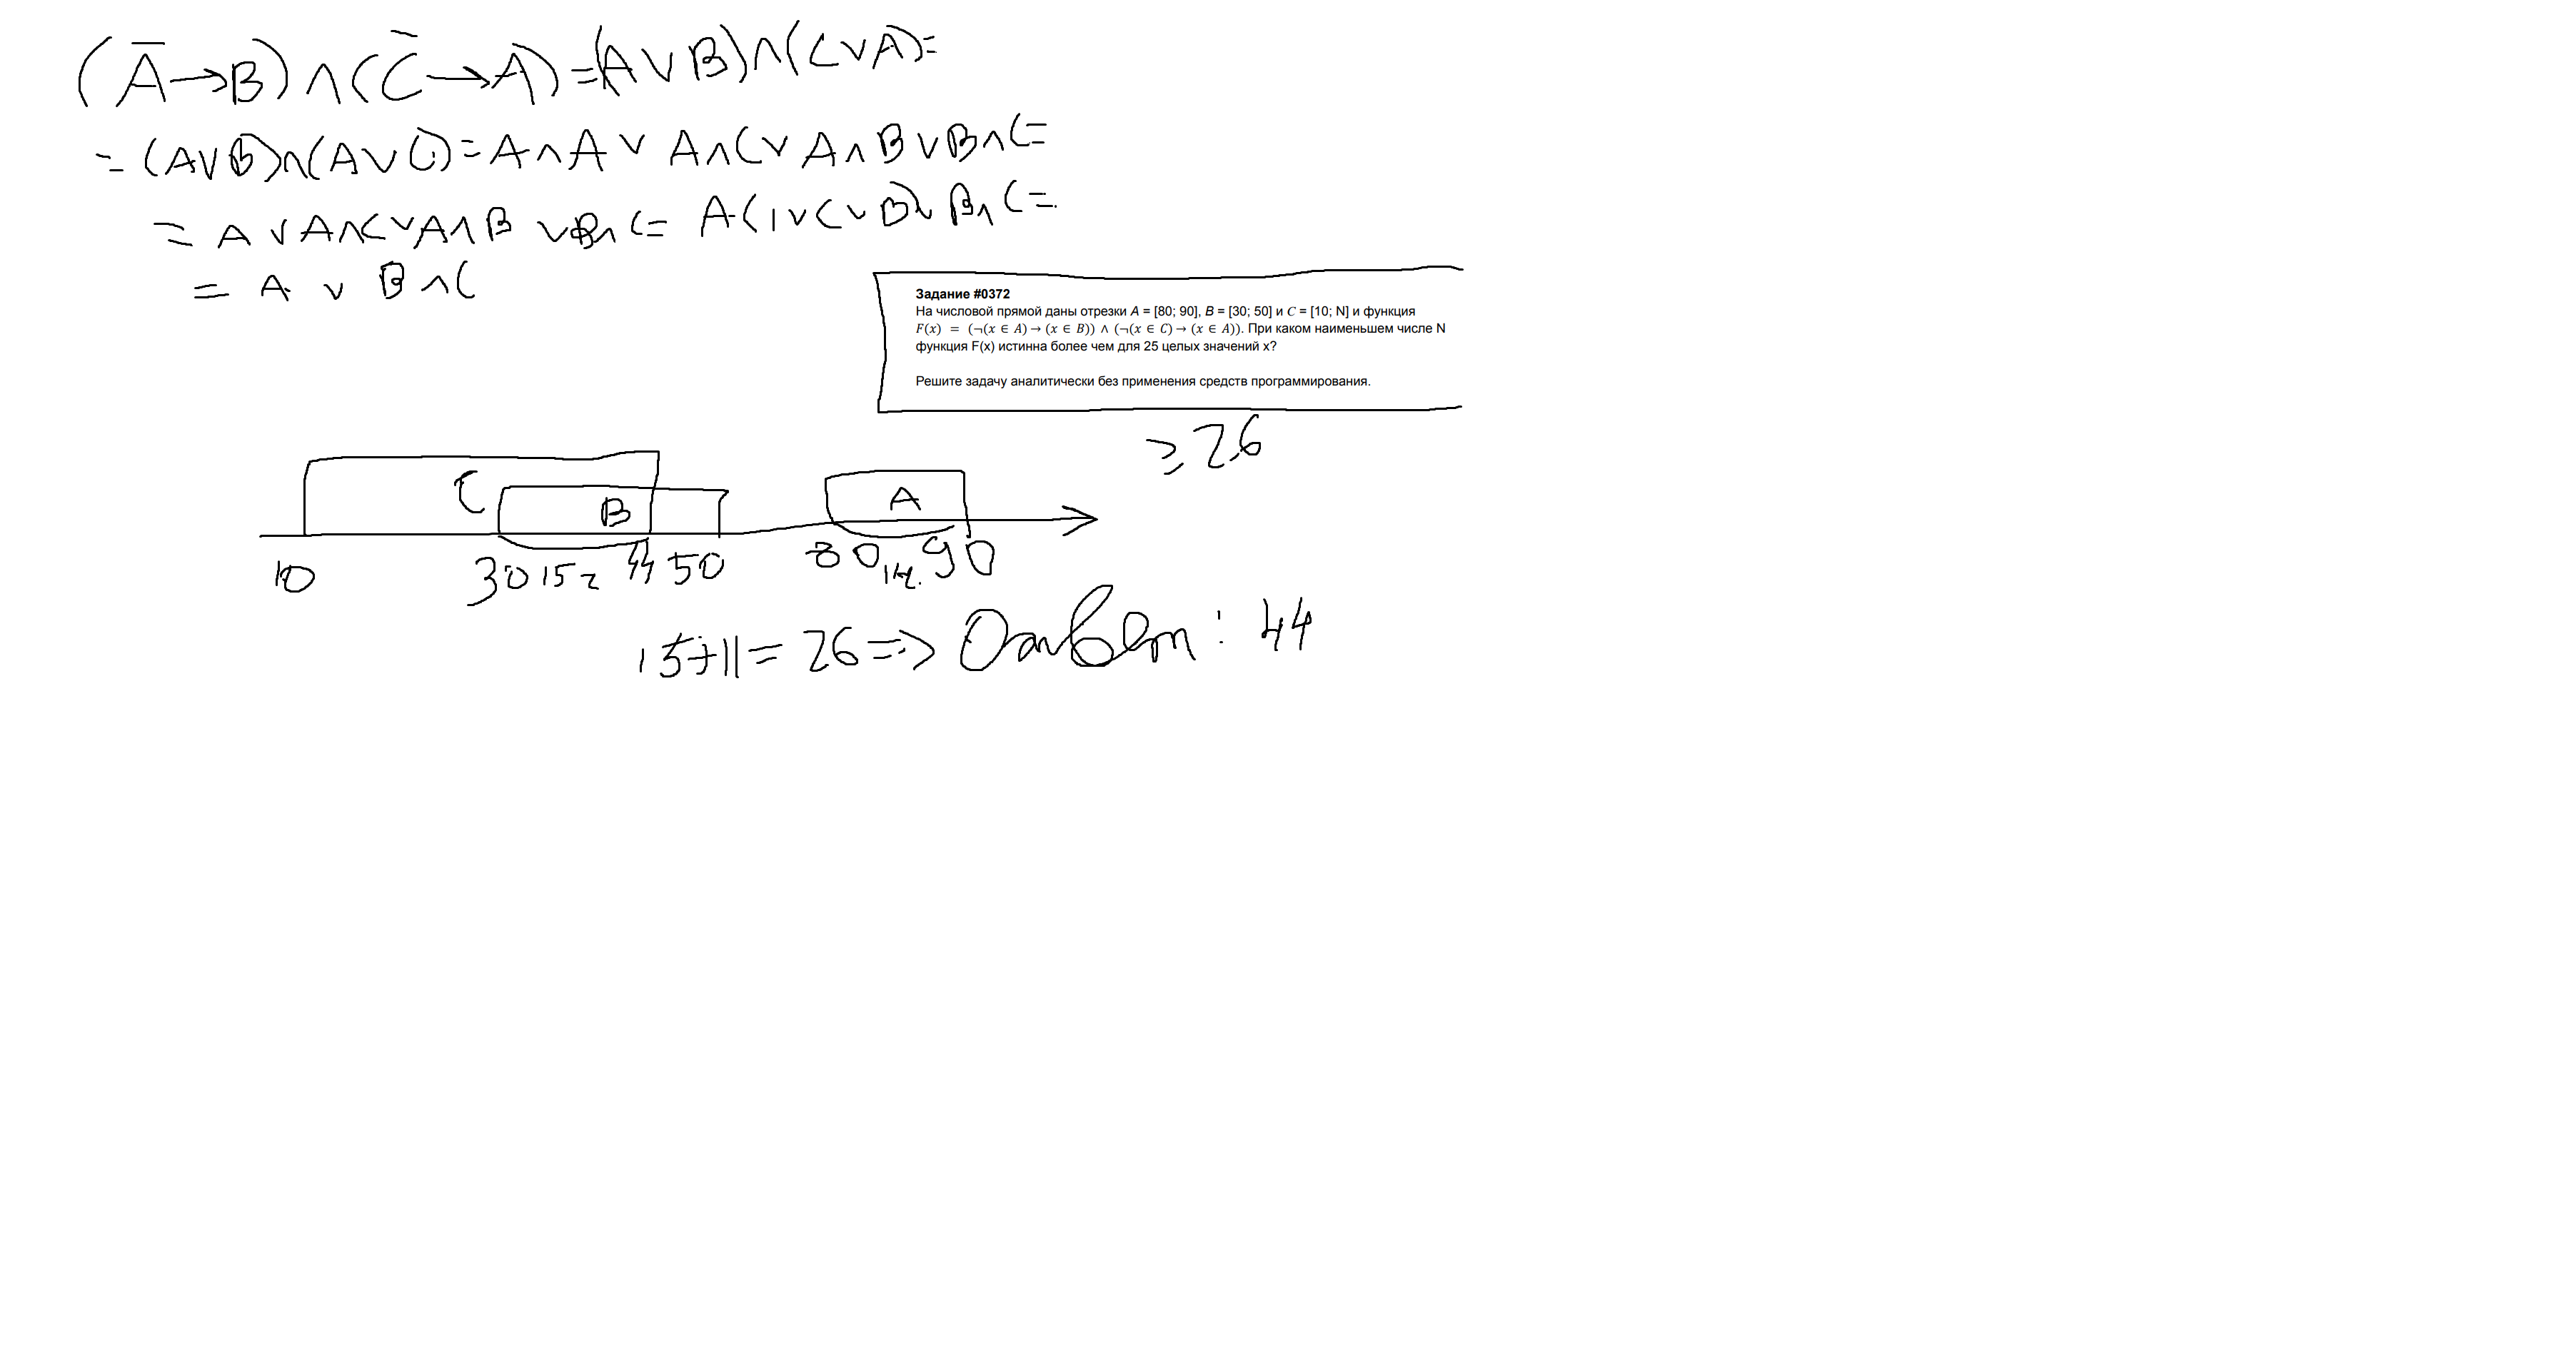 (A̅→B)∧(C̅→A)=(A∨B)∧(C∨A)=
=(A∨B)∧(A∨C)=A∧A∨A∧C∨A∧B∨B∧C=
=A∨A∧C∨A∧B∨B∧C=A·(1∨C∨B)∨B∧C=
=A∨B∧C
Задание #0372
На числовой прямой даны отрезки A = [80; 90], B = [30; 50] и C = [10; N] и функция
F(x) = (¬(x ∈ A) → (x ∈ B)) ∧ (¬(x ∈ C) → (x ∈ A)). При каком наименьшем числе N
функция F(x) истинна более чем для 25 целых значений x?
Решите задачу аналитически без применения средств программирования.
≥26
C B A
10 30 15 44 50 80 90
15+11=26=> Ответ: 44